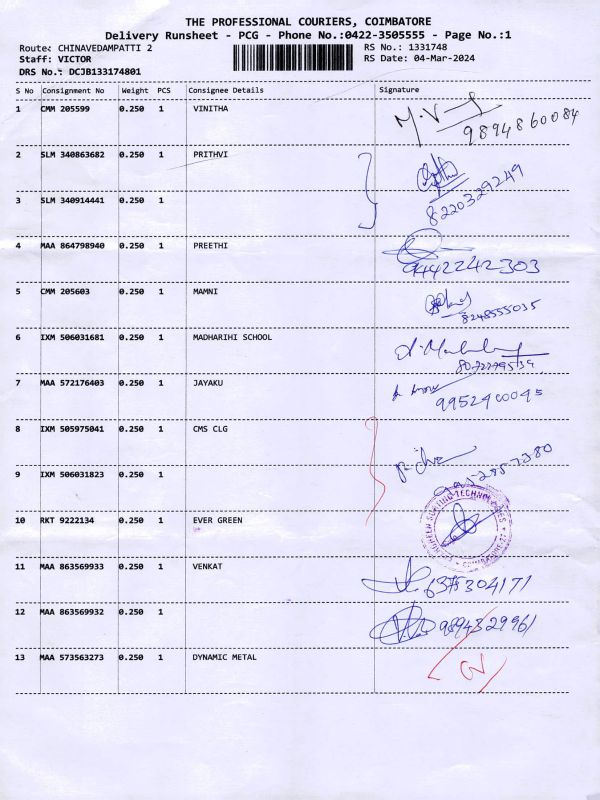 THE PROFESSIONAL COURIERS, COIMBATORE
Delivery Runsheet - PCG - Phone No.:0422-3505555 - Page No.:1
Route: CHINAVEDAMPATTI 2 RS No.: 1331748
Staff: VICTOR RS Date: 04-Mar-2024
DRS No.: DCJB133174801
S No Consignment No Weight PCS Consignee Details Signature
1 CMM 205599 0.250 1 VINITHA
9894860084
2 SLM 340863682 0.250 1 PRITHVI
8220329249
3 SLM 340914441 0.250 1
4 MAA 864798940 0.250 1 PREETHI
9442242303
5 CMM 205603 0.250 1 MAMNI
8248555035
6 IXM 506031681 0.250 1 MADHARIHI SCHOOL
7 MAA 572176403 0.250 1 JAYAKU
9952400045
8 IXM 505975041 0.250 1 CMS CLG
9 IXM 506031823 0.250 1
10 RKT 9222134 0.250 1 EVER GREEN
11 MAA 863569933 0.250 1 VENKAT
12 MAA 863569932 0.250 1
9894329961
13 MAA 573563273 0.250 1 DYNAMIC METAL